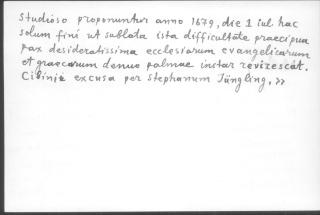 Studioso proponuntur anno 1679, die 1 iul hac
solum fini ut sublata ista difficultate praecipua
pax desideratissima ecclesiarum evangelicarum
et graecarum denuo palmae instar revirescat.
Cibinie excusa per Stephanum Jüngling, »